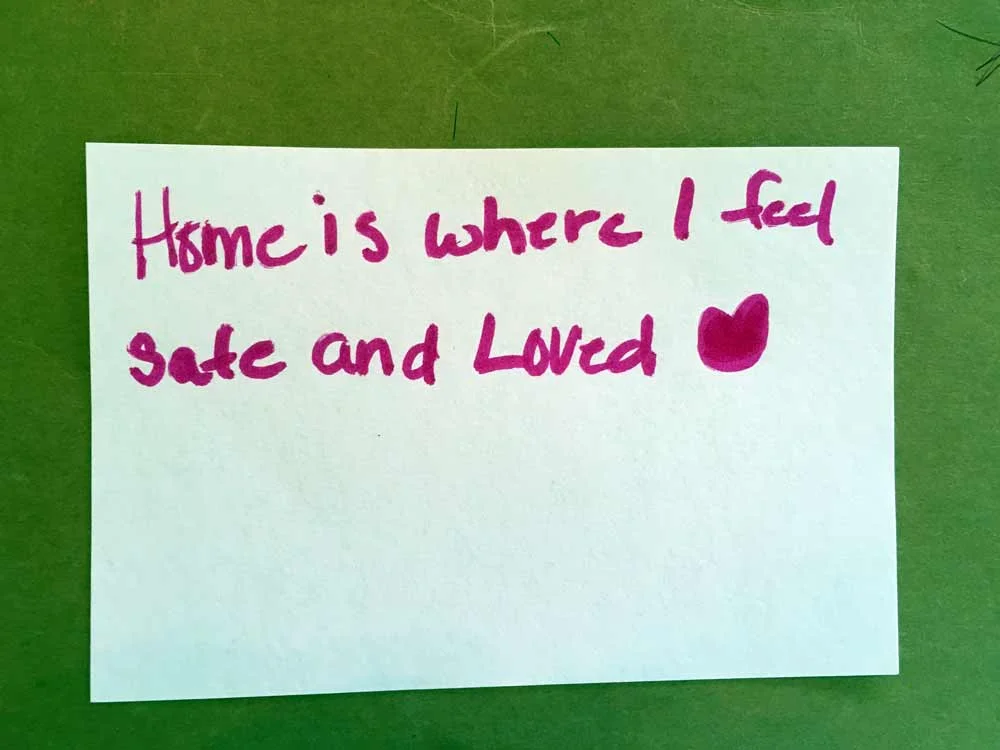 Home is where I feel
safe and Loved ♥